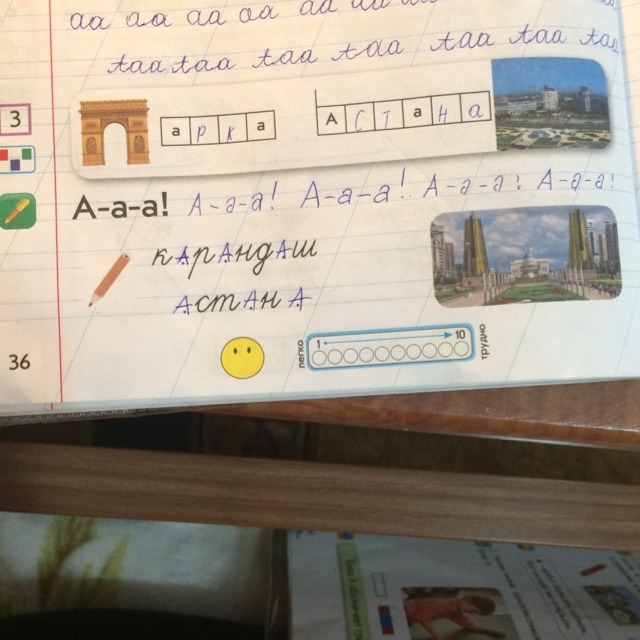 аа аа аа аа аа аа
таа таа таа таа таа таа таа
3
арка
Астана
А-а-а! А-а-а! А-а-а! А-а-а! А-а-а!
кАрАндАш
АстАнА
36
легко
1 10
трудно